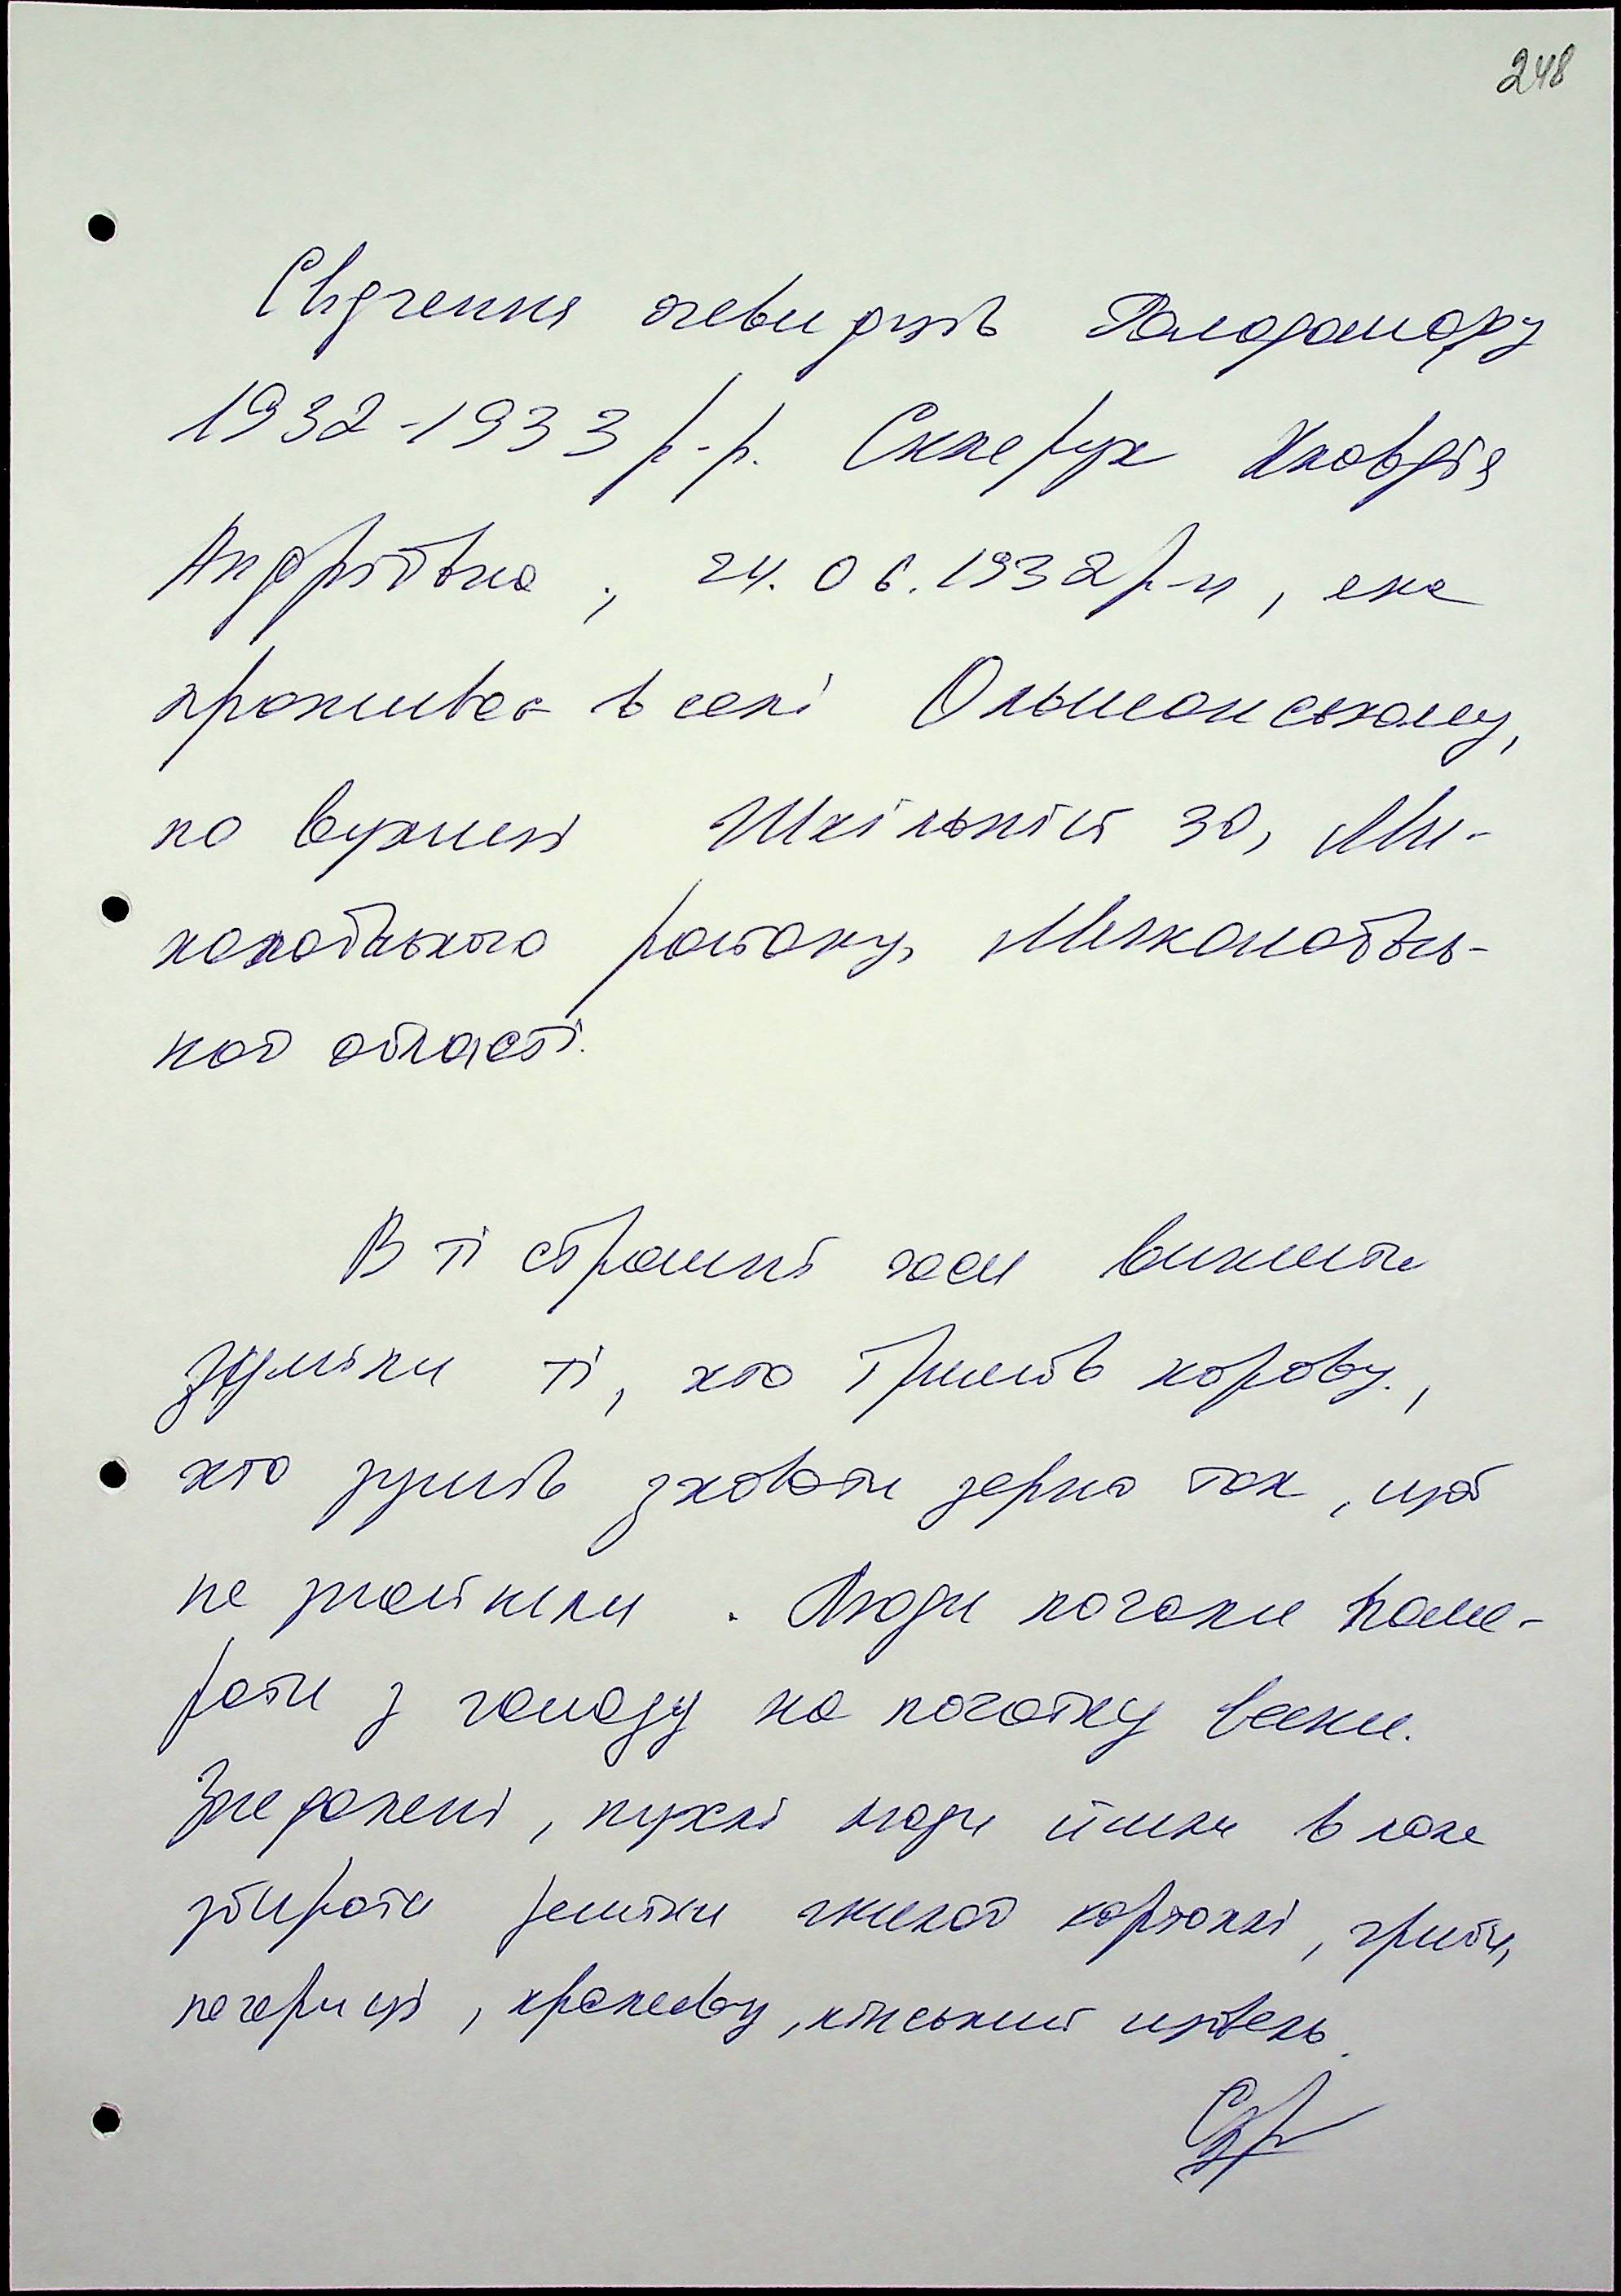 248
Свідчення очевидців Голодомору
1932-1933 р-р. Склерух Явдія
Андріївна, 24.06.1932 р-н, яка
проживає в селі Ольшанському,
по вулиці Шкільній 30, Ми-
колаївського району, Миколаївсь-
кої області.
В ті страшні часи вижити
зуміли ті, хто тримав корову.,
хто зумів зховати зерно так, щоб
не знайшли. Люди почали поме-
рати з голоду на початку весни.
Знедолені, пухлі люди йшли в поле
збирати рештки гнилої картоплі, гриби,
печериці, кропиву, кінський щавель.